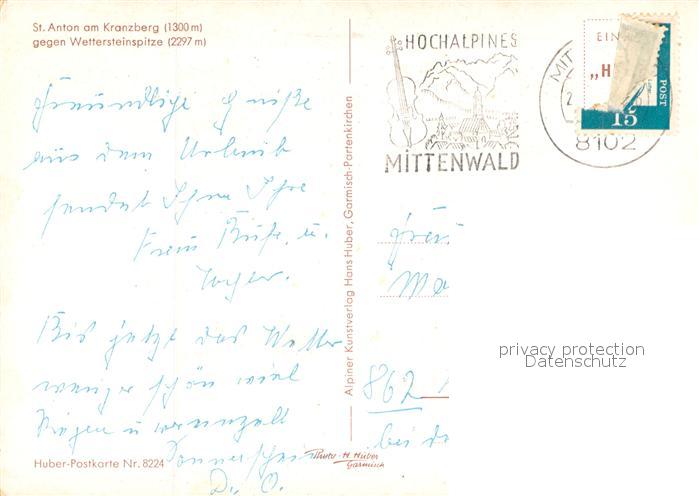 St. Anton am Kranzberg (1300 m)
gegen Wettersteinspitze (2297 m)
HOCHALPINES
MITTENWALD
EIN
„H
POST
15
MIT
8102
Freundliche Grüße
aus dem Urlaub
sendet Ihnen Ihre
Frau u.
Tochter.
Bis jetzt das Wetter
weniger schön viel
Regen u
Sonnenschein
Alpiner Kunstverlag Hans Huber, Garmisch-Partenkirchen
Frau
862
privacy protection
Datenschutz
Huber-Postkarte Nr. 8224
Photo-H. Huber
Garmisch